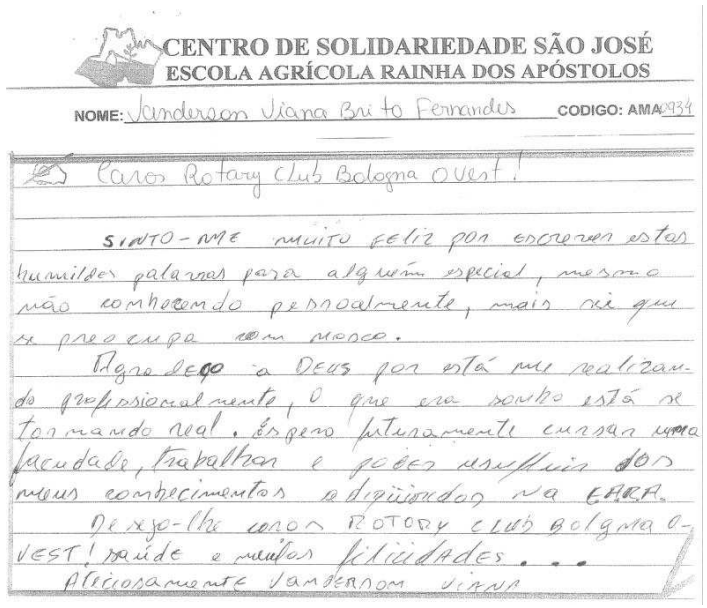 CENTRO DE SOLIDARIEDADE SÃO JOSÉ
ESCOLA AGRÍCOLA RAINHA DOS APÓSTOLOS
NOME: Vanderson Viana Brito Fernandes CODIGO: AMA0934
Caros Rotary Club Bologna Ovest!
SINTO-ME muito FELiz por escrever estas
humildes palavras para alguém especial, mesmo
não conhecendo pessoalmente, mais sei que
se preocupa com nosco.
Agradeço a DEUS por está me realizan-
do profissionalmente, O que era sonho está se
tornando real. Espero futuramente cursar uma
facudade, trabalhar e poder usufluir dos
meus conhecimentos adiqüiridos NA EARA.
Desejo-lhe caros ROTORY CLUB Bolgna O-
VEST! saúde e muitos filicidADES...
Atenciosamente VANDERSOM VIANA